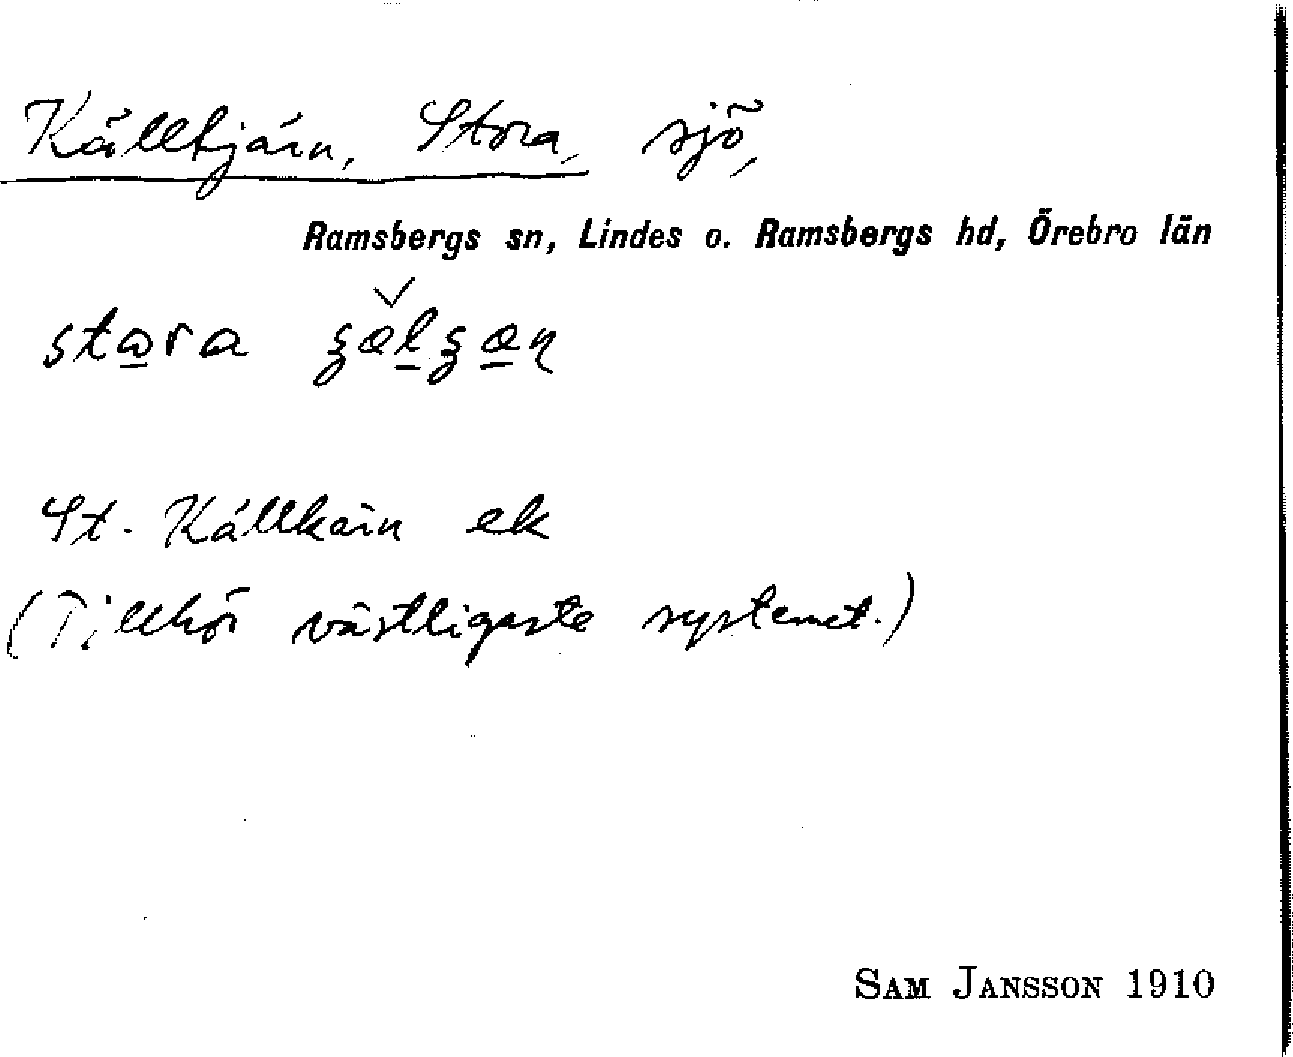 Källtjärn, Stora, sjö,
Ramsbergs sn, Lindes o. Ramsbergs hd, Örebro län
stara
St. Källkärn ek
(Tillhör västligaste systemet.)
SAM JANSSON 1910